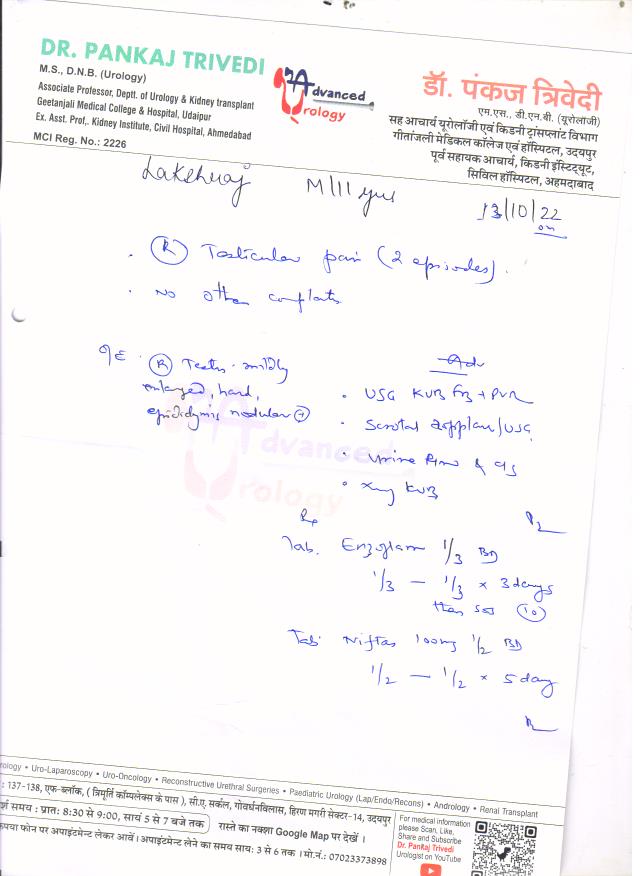 DR. PANKAJ TRIVEDI
M.S., D.N.B. (Urology)
Associate Professor, Deptt. of Urology & Kidney transplant
Geetanjali Medical College & Hospital, Udaipur
Ex. Asst. Prof,. Kidney Institute, Civil Hospital, Ahmedabad
MCI Reg. No.: 2226
Advanced
Urology
डॉ. पंकज त्रिवेदी
एम.एस., डी.एन.बी. (यूरोलॉजी)
सह आचार्य यूरोलॉजी एवं किडनी ट्रांसप्लांट विभाग
गीतांजली मेडिकल कॉलेज एवं हॉस्पिटल, उदयपुर
पूर्व सहायक आचार्य, किडनी इंस्टिट्यूट,
सिविल हॉस्पिटल, अहमदाबाद
Lakshraj M/11 yrs
13/10/22
. (R) Testicular pain (2 episodes).
. No other complaints
O/E . (R) Testis - mildly
enlarged, hard,
epididymis nodular (+)
Adv
. USG KUB + PVR
. Scrotal doppler/USG
. Urine R/M & C/S
. Xray KUB
Rx
Tab. Enzoflam 1/3 BD
1/3 — 1/3 x 3 days
then sos (10)
Tab. Niftas 100mg 1/2 BD
1/2 — 1/2 x 5 day
Advanced
Urology
rology • Uro-Laparoscopy • Uro-Oncology • Reconstructive Urethral Surgeries • Paediatric Urology (Lap/Endo/Recons) • Andrology • Renal Transplant
: 137-138, एफ-ब्लॉक, ( त्रिमूर्ति कॉम्पलेक्स के पास ), सी.ए. सर्कल, गोवर्धनविलास, हिरण मगरी सेक्टर-14, उदयपुर
र्श समय : प्रात: 8:30 से 9:00, सायं 5 से 7 बजे तक रास्ते का नक्शा Google Map पर देखें ।
कृपया फोन पर अपाइंटमेन्ट लेकर आवें । अपाइंटमेन्ट लेने का समय सायं: 3 से 6 तक । मो.नं.: 07023373898
For medical information
please Scan, Like,
Share and Subscribe
Dr. Pankaj Trivedi
Urologist on YouTube